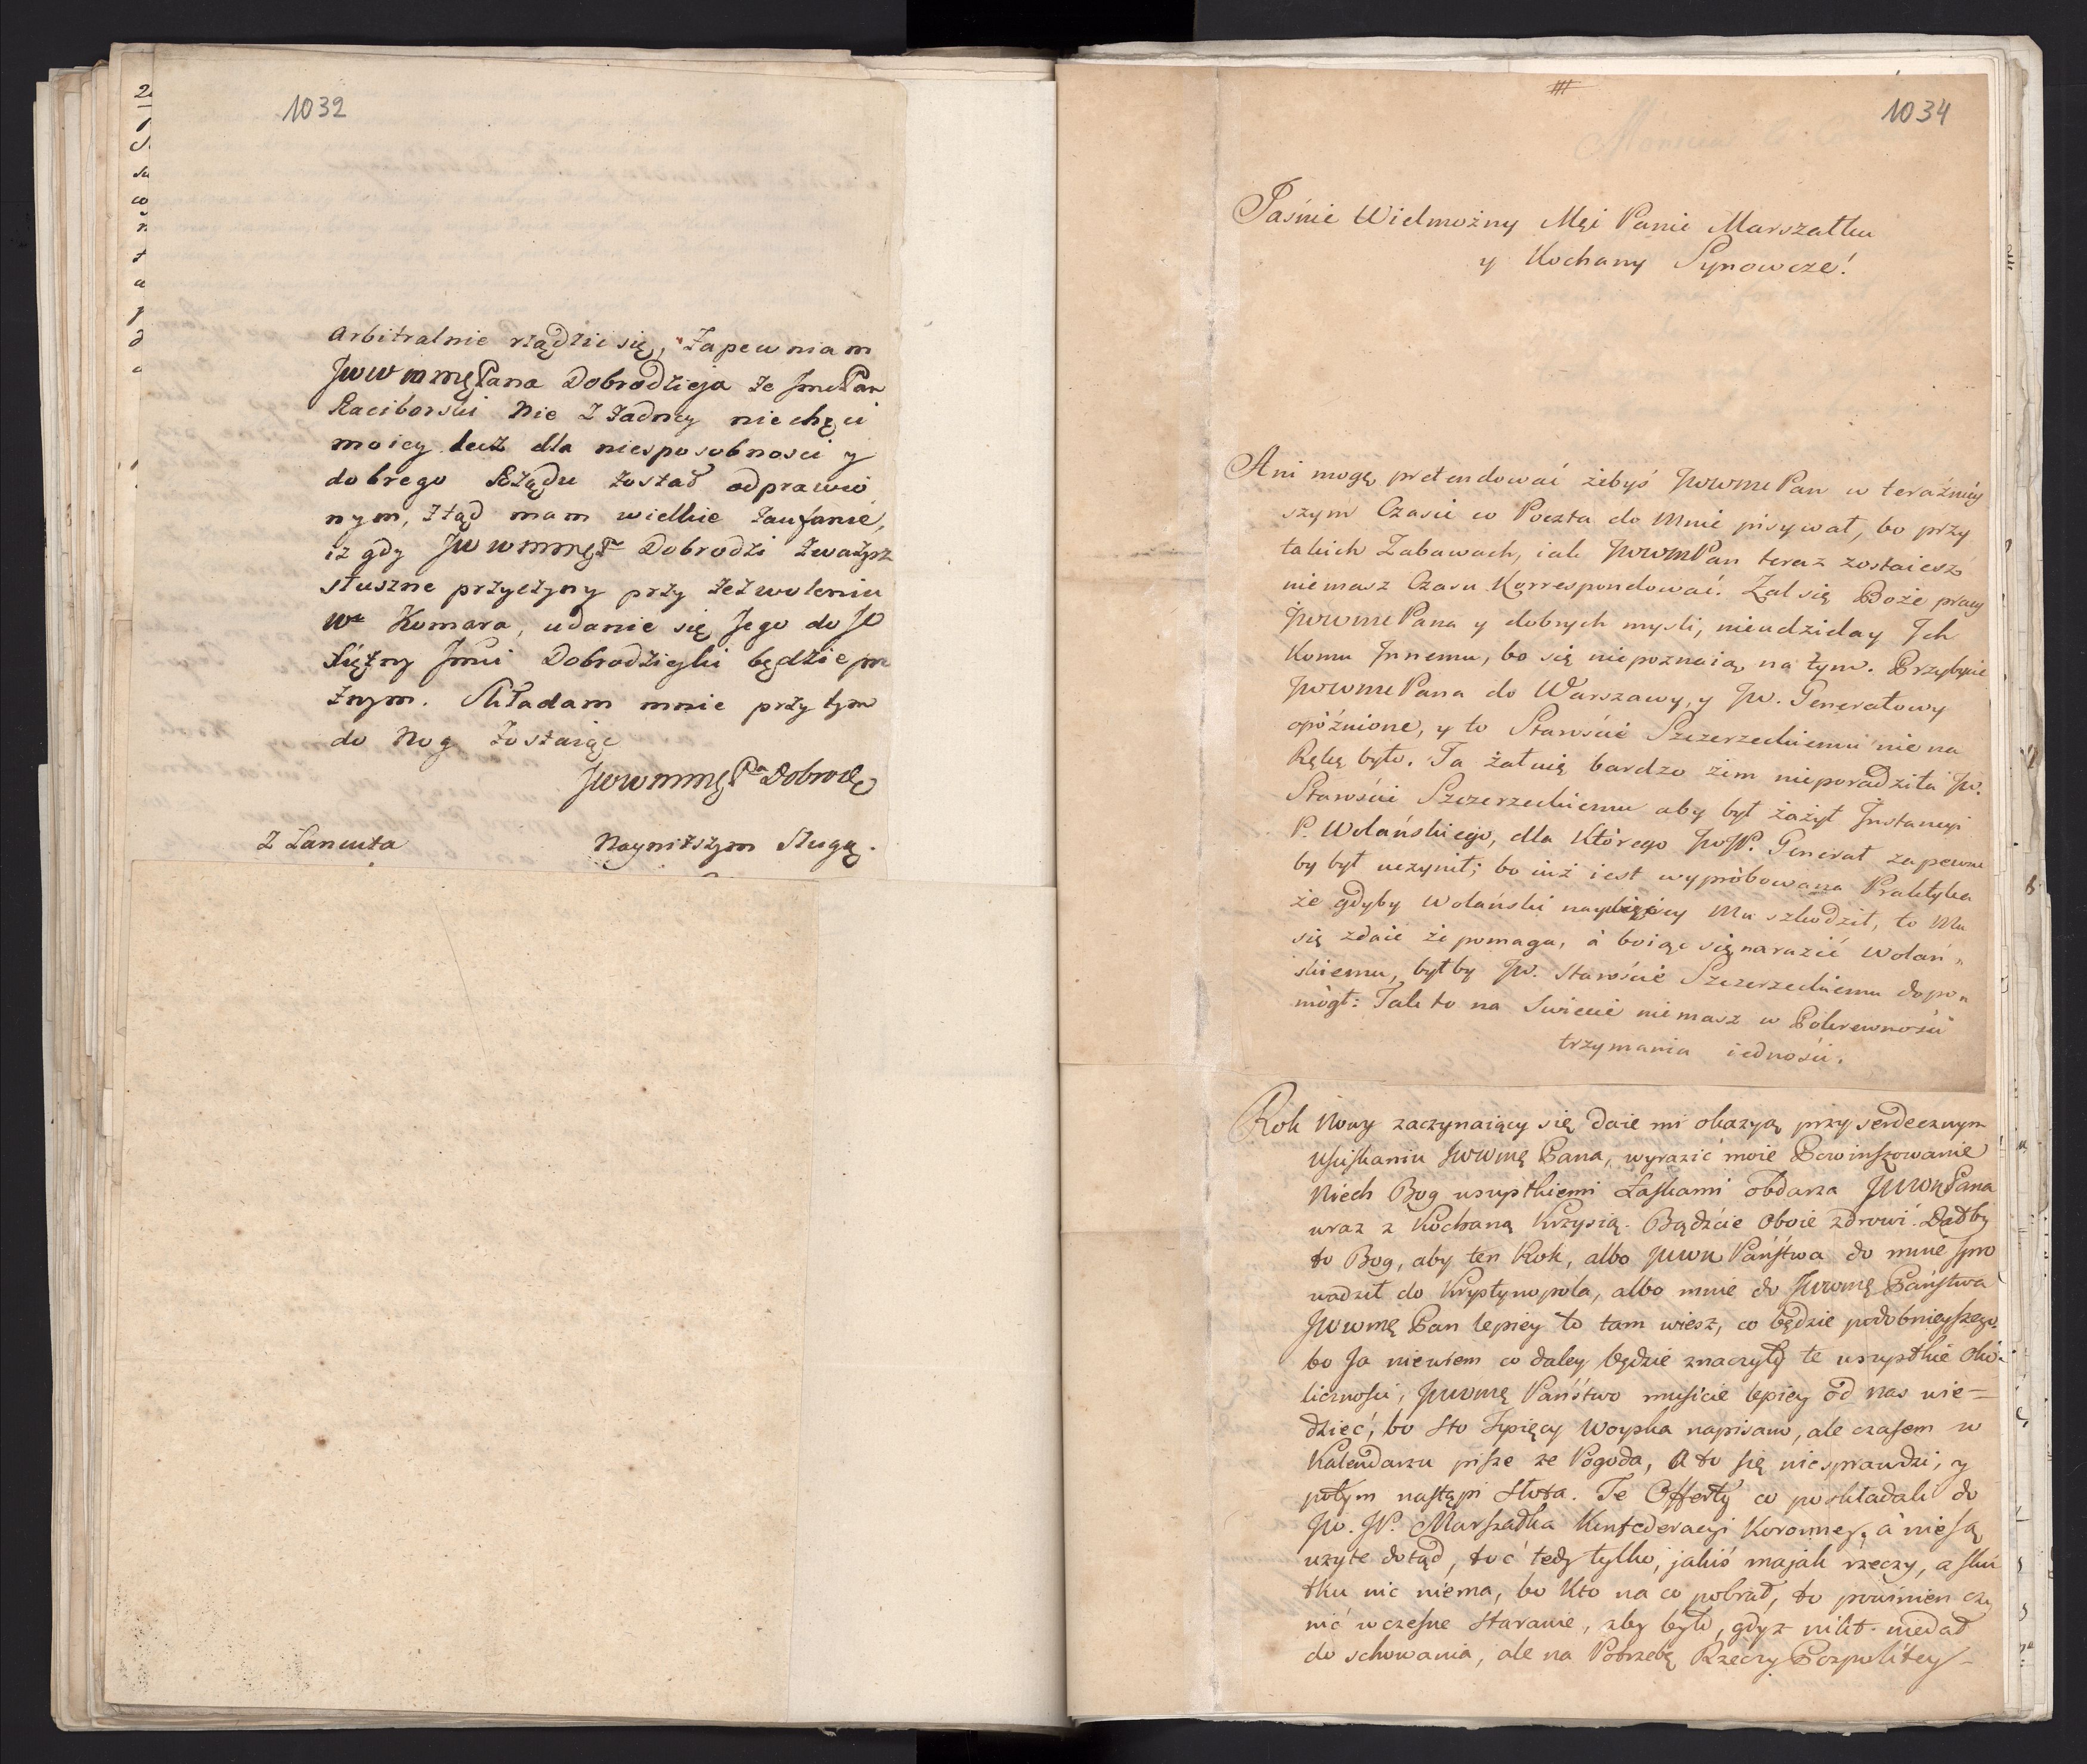 1032
arbitralnie rządzic się, Zapewniam
JWWmmę Pana Dobrodzieja że Jmć Pan
Raciborski Nie z żadney niechęci
moiey lecz dla niesposobnosci y
dobrego Rządu został odprawio
nym, ztąd mam wielkie zaufanie,
iz gdy JWWmmę Pn Dobrodzi zwazysz
słuszne przyczyny przy zezwoleniu
We Komara, udanie się Jego do JO
Xiężny Jmći Dobrodzieyki będzie
żnym. Składam mnie przy tym
do Nog zostaiąc
JWWmmę Pa Dobrodz
Z Lancuta
Nayniższym Sługą.
1034
Jaśnie Wielmożny Mći Panie Marszałku
y Kochany Synowcze!
Ani mogę pretendować żibyś JWWmePan w teraźniey
szym Czasie co Poczta do Mnie pisywał, bo przy
takich Zabawach, iak JWWmPan teraz zostaiesz
niemasz Czasu Korrespondować. Zal się Boże pracy
JWWmePana y dobrych mysli, nieudzielay Ich
Komu Innemu, bo się niepoznaią na tym. Przybycie
JWWmePana do Warszawy, y JW. Generałowy
opóźnione, y to Staroście Szczerzeckiemu nie na
Rękę było. Ja żałuię bardzo żim nieporadziła JW.
Starości Szczerzeckiemu aby był zażył Instancyi
P. Wolańskiego, dla Którego JWJP. Generał zapewne
by był uczynił; bo iuż iest wypróbowana Praktyka
że gdyby Wolański naywięcey Mu szkodził, to Mu
się zdaie że pomaga, à boiąc się narazić Wolań„
skiemu, byłby JW. Staroście Szczerzeckiemu dopo„
mógł: Tak to na Swiecie niemasz w Pokrewności
trzymania iedności.
Rok Nowy zaczynaiący się daie mi okazyą przy serdecznym
Usciskaniu JWWmę Pana, wyrazić moie Powinszowanie
Niech Bog wszystkiemi Łaskami obdarza JWWmę Pana
wraz z Kochaną Krzysią. Bądźcie oboie zdrowi. Dałby
to Bog, aby ten Rok, albo JWWm Państwa do mnie spro
wadził do Krystynopola, albo mnie do JWWmę Państwa
JWWmę Pan lepiey to tam wiesz, co będzie podobnieyszego,
bo Ja niewiem co daley będzie znaczyły te wszystkie oko-
licznosci, JWWmę Państwo musicie lepiey od nas wie=
dzieć, bo sto Tysięcy Woyska napisano, ale czasem w
Kalendarzu pisze ze Pogoda, a to się niesprawdzi, y
potym nastąpi słota. Te Offerty co poskładali do
JW. JP. Marszałka Konfederacyi Koronney, à nie są
uzyte dotąd, toć tedy tylko, jakiś majak rzeczy, a sku
tku nic niema, bo Kto na co pobrał, to powinien czy
nić wczesne staranie, aby było, gdyz nikt niedał
do schowania, ale na Potrzebę Rzeczy Pospolitey